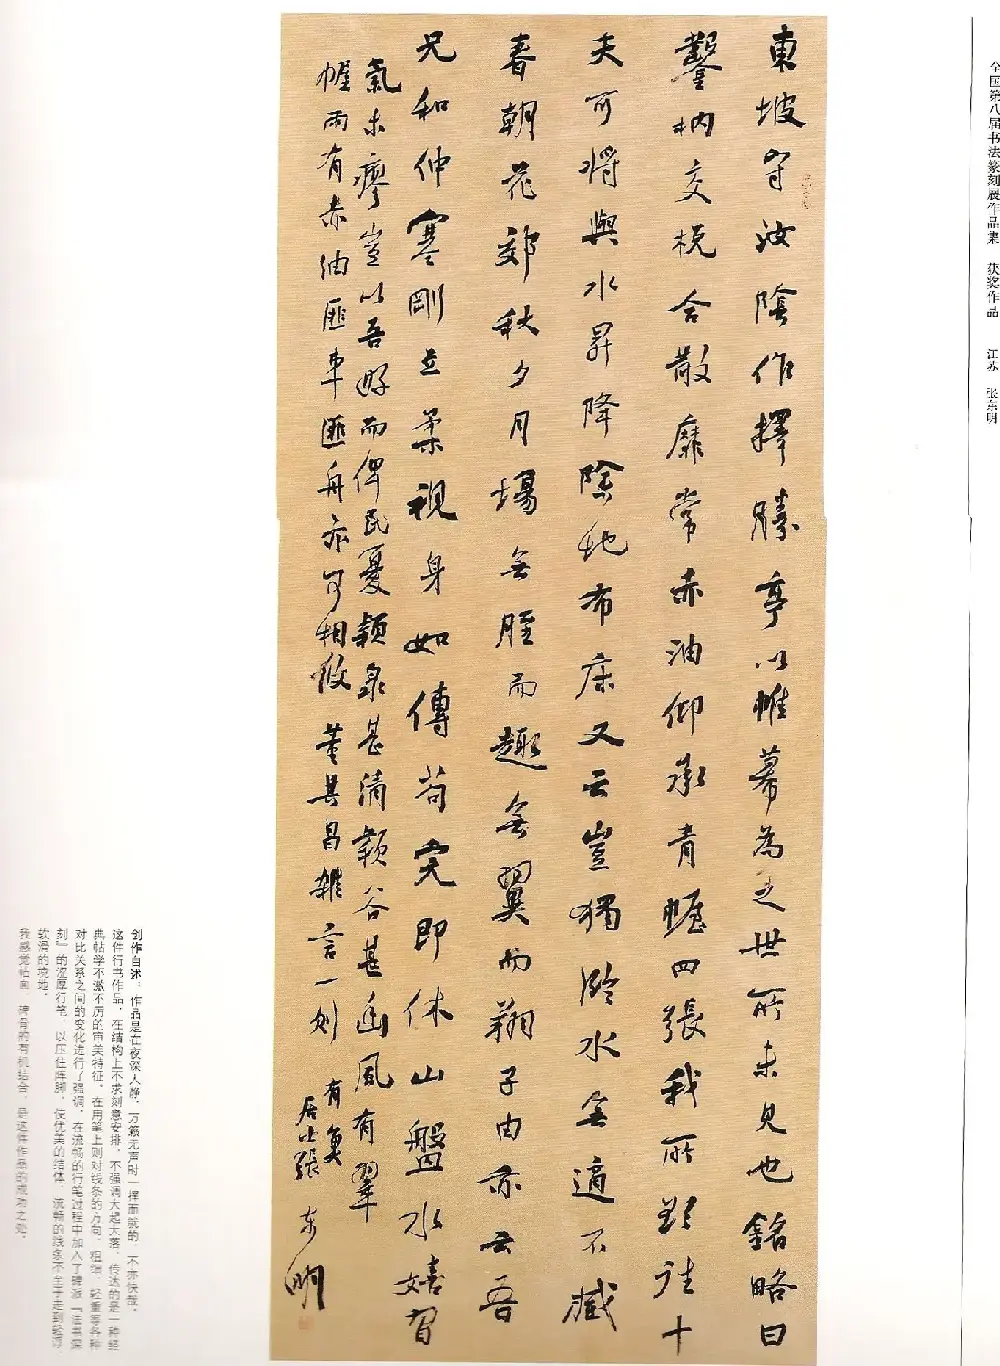 全国第八届书法篆刻展作品集 获奖作品 江苏 张东明
東坡守汝陰作擇勝亭以帷幕為之世所未見也銘略曰
鑿枘交梲合散靡常赤油仰承青幄四張我所欲往十
夫可將與水昇降除地布床又云豈獨臨水無適不臧
春朝花郊秋夕月場無脛而趨無翼而翔子由亦云吾
兄和仲塞剛立柔視身如傳苟完即休山盤水嬉習
氣未瘳豈以吾好而俾民憂潁泉甚清潁谷甚幽風有翠
幄雨有赤油匪車匪舟亦可相攸 董其昌雜言一則 有真
居士張
东明
创作自述：作品是在夜深人静，万籁无声时一挥而就的，不亦快哉。
这件行书作品，在结构上不求刻意安排，不强调大起大落，传达的是一种经
典帖学不激不厉的审美特征。在用笔上则对线条的方向、粗细、轻重等各种
对比关系之间的变化进行了强调，在流畅的行笔过程中加入了碑派『法书深
刻』的涩厚行笔，以压住阵脚，使优美的结体、流畅的线条不至于走到轻浮、
软滑的境地。
我感觉帖面、碑骨的有机结合，是这件作品的成功之处。